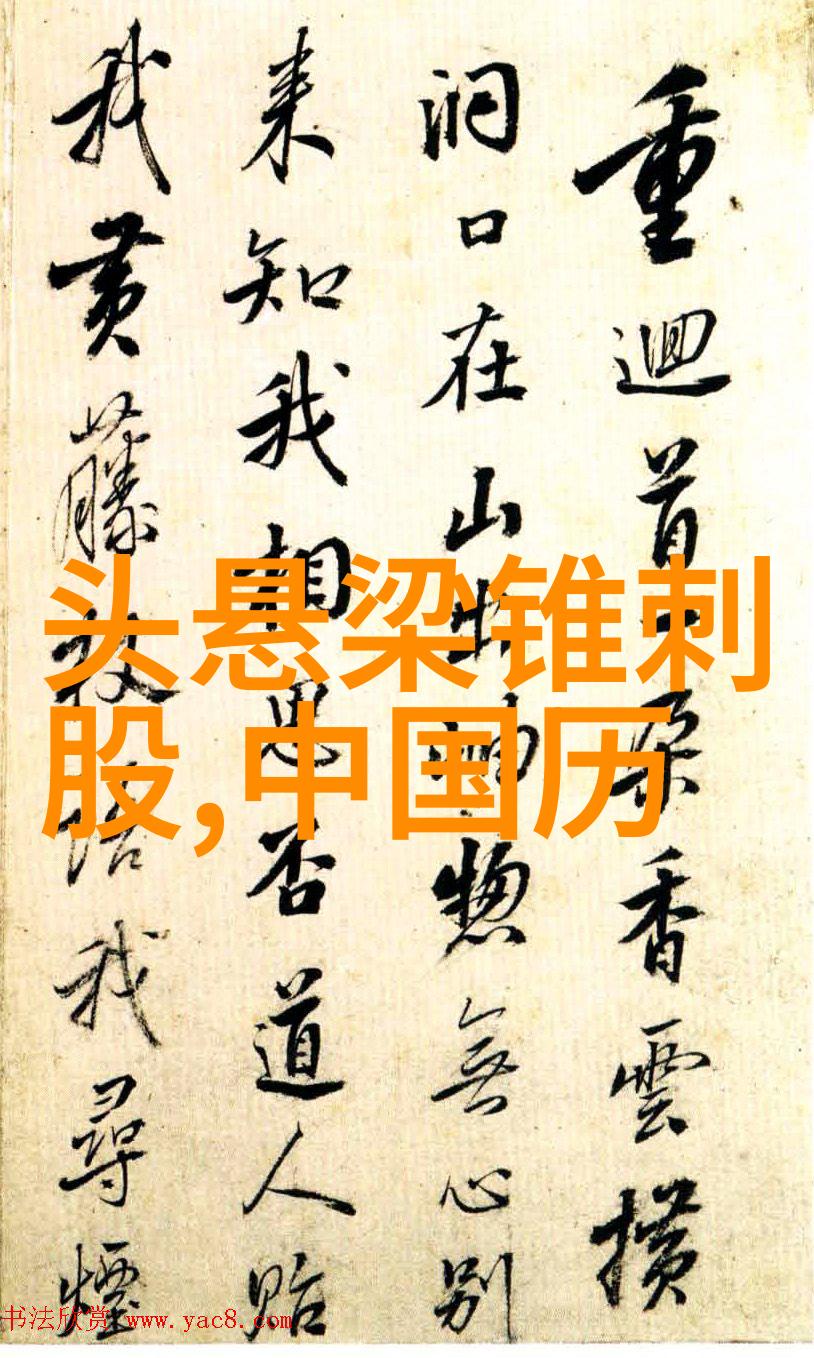 头悬梁锥刺
股,中国历
重迴首一朵香雲横
洞口在山出岫惣無心别
来知我相思否道人貽
我黄藤杖我尋煙
书法欣赏 www.yac8.com